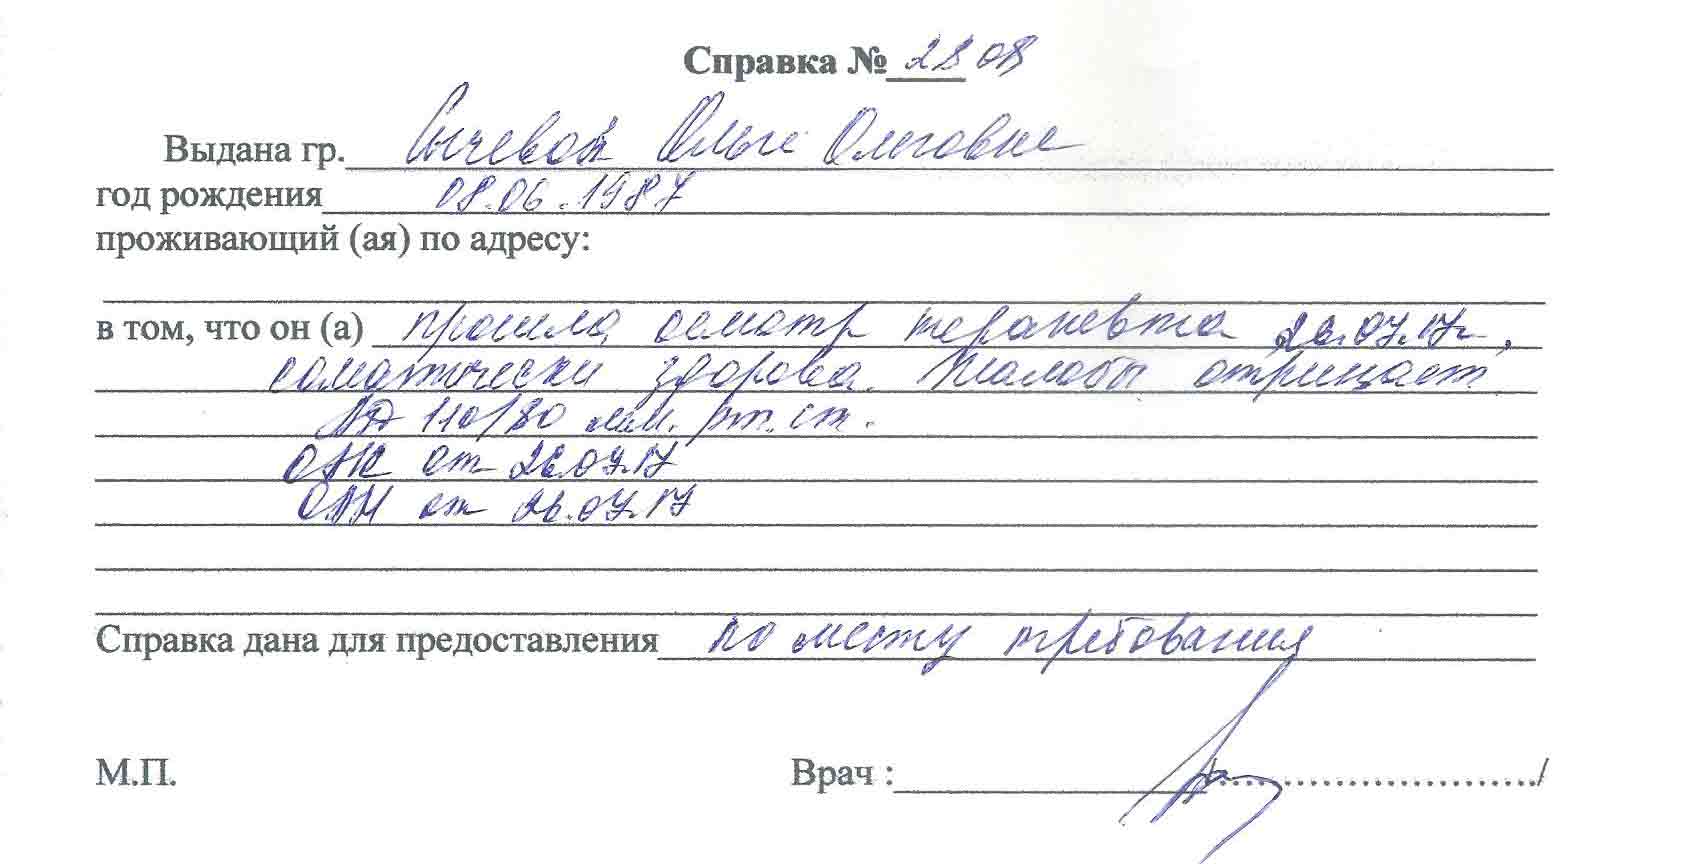 Справка № 2808
Выдана гр. Сычевой Ольге Олеговне
год рождения 08.06.1987
проживающий (ая) по адресу:
в том, что он (а) прошла осмотр терапевта 26.07.17г.,
соматически здорова. Жалобы отрицает
АД 110/80 мм. рт. ст.
ОАК от 26.07.17
ОАМ от 26.07.17
Справка дана для предоставления по месту требования
М.П. Врач : /